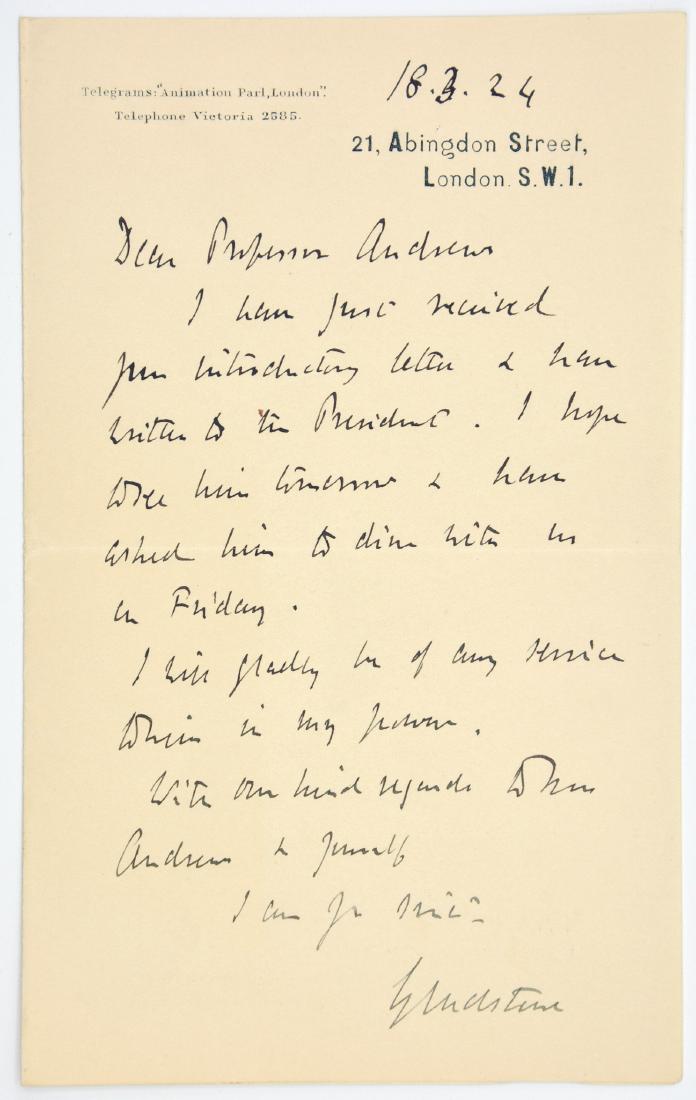 Telegrams: "Animation Parl, London".
Telephone Victoria 2585.
18.3.24
21, Abingdon Street,
London. S.W.1.
Dear Professor Andrews
I have just received
your introductory letter & have
written to the President. I hope
to see him tomorrow & have
asked him to dine with us
on Friday.
I will gladly be of any service
to him in my power.
With our kind regards to Mrs
Andrews & yourself
I am yr sincly
Gladstone